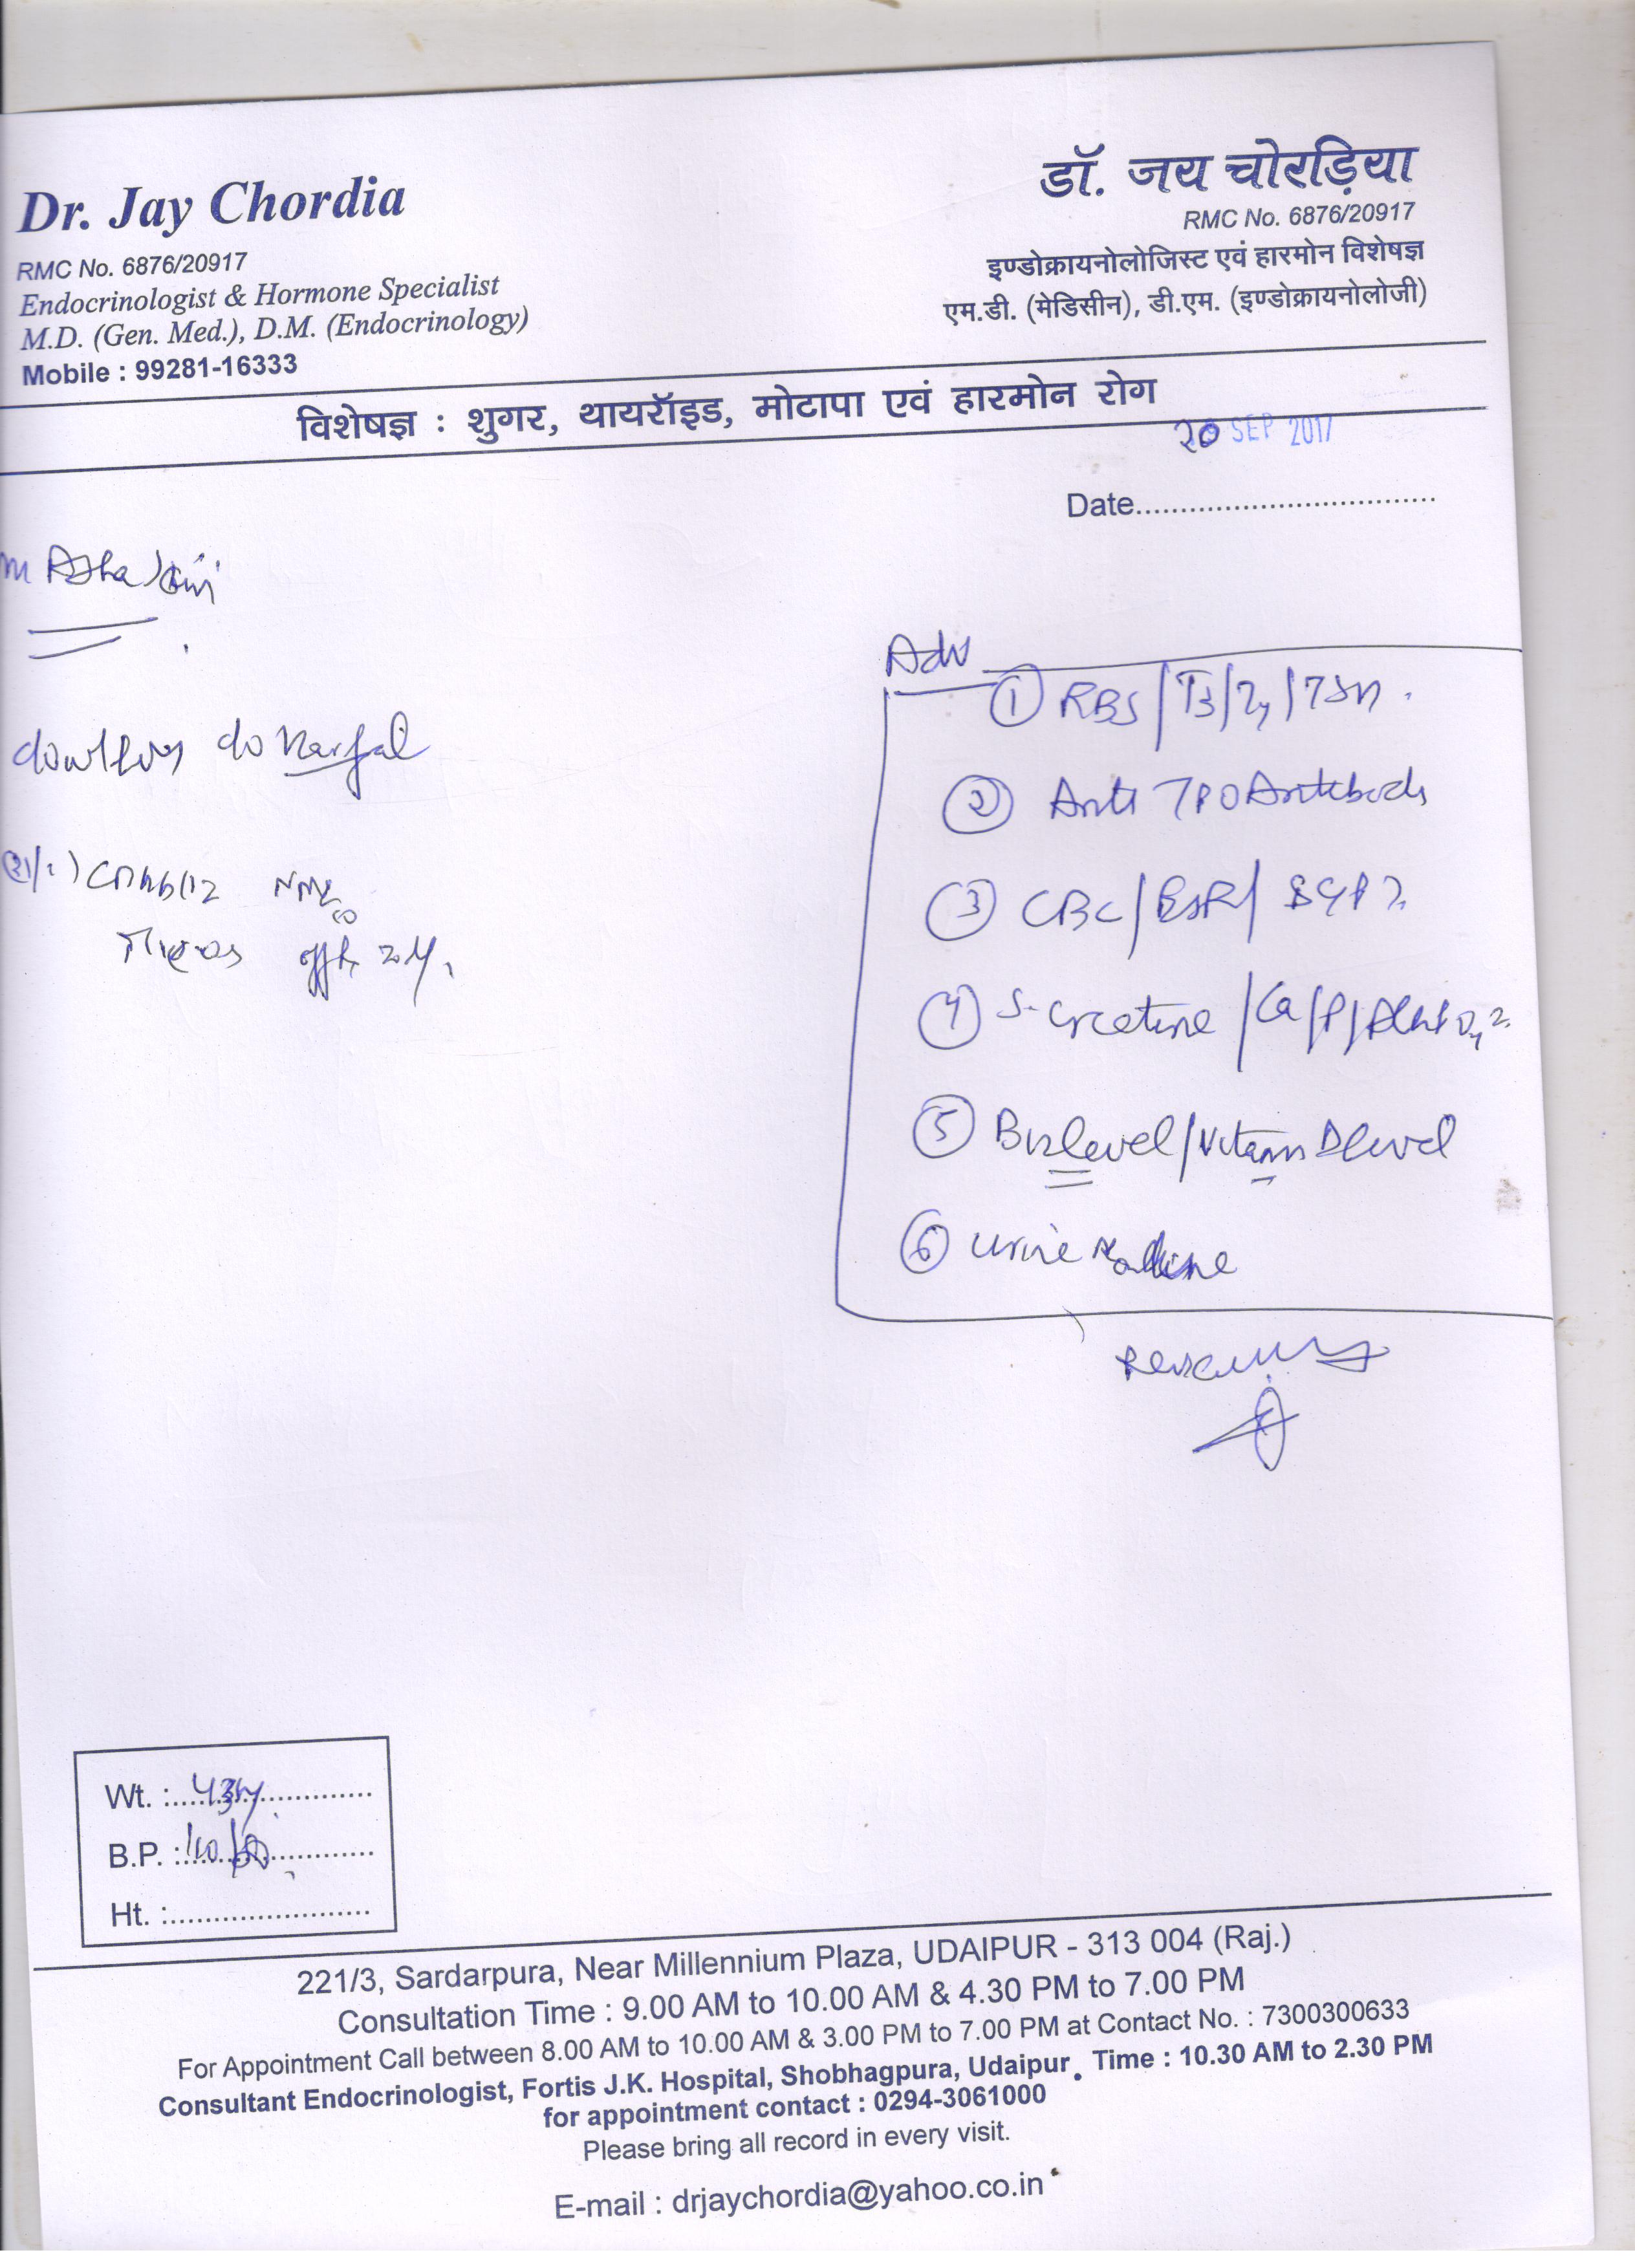 Dr. Jay Chordia
RMC No. 6876/20917
Endocrinologist & Hormone Specialist
M.D. (Gen. Med.), D.M. (Endocrinology)
Mobile : 99281-16333
डॉ. जय चोरड़िया
RMC No. 6876/20917
इण्डोक्रायनोलोजिस्ट एवं हारमोन विशेषज्ञ
एम.डी. (मेडिसीन), डी.एम. (इण्डोक्रायनोलोजी)
विशेषज्ञ : शुगर, थायरॉइड, मोटापा एवं हारमोन रोग
20 SEP 2017
Date
Asha
Adv
① RBS/T3/T4/TSH
② Anti TPO Antibody
③ CBC/ESR/SGPT
④ S. /Ca/P/
⑤ B12 level/Vitamin D level
⑥ Urine
Wt. : 43
B.P. :
Ht. :
221/3, Sardarpura, Near Millennium Plaza, UDAIPUR - 313 004 (Raj.)
Consultation Time : 9.00 AM to 10.00 AM & 4.30 PM to 7.00 PM
For Appointment Call between 8.00 AM to 10.00 AM & 3.00 PM to 7.00 PM at Contact No. : 7300300633
Consultant Endocrinologist, Fortis J.K. Hospital, Shobhagpura, Udaipur. Time : 10.30 AM to 2.30 PM
for appointment contact : 0294-3061000
Please bring all record in every visit.
E-mail : drjaychordia@yahoo.co.in